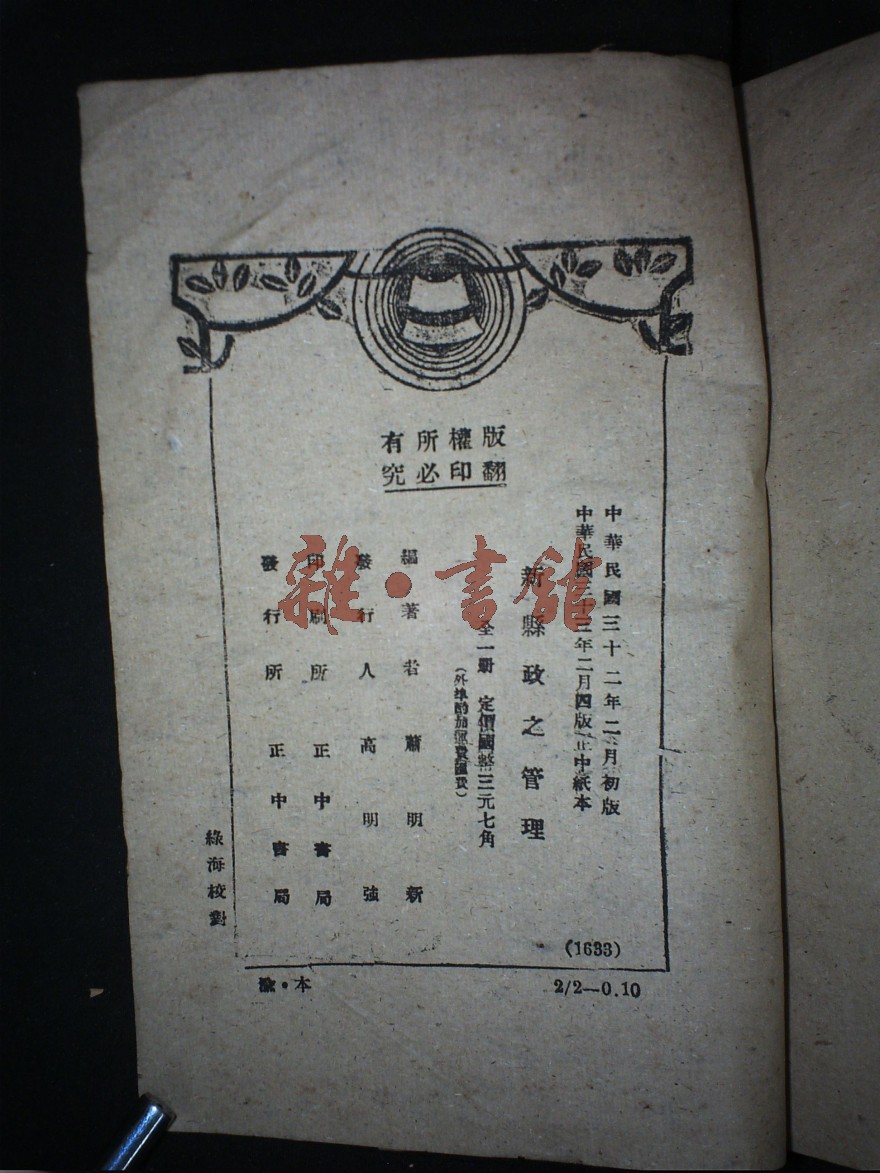 版權所有
翻印必究
中華民國三十二年二月初版
中華民國三十三年二月四版正中紙本
新縣政之管理
全一冊 定價國幣三元七角
(外埠酌加運費匯費)
編著者 蕭明新
發行人 高明強
印刷所 正中書局
發行所 正中書局
綠海校對
(1633)
渝•本
2/2—0.10
雜•書館